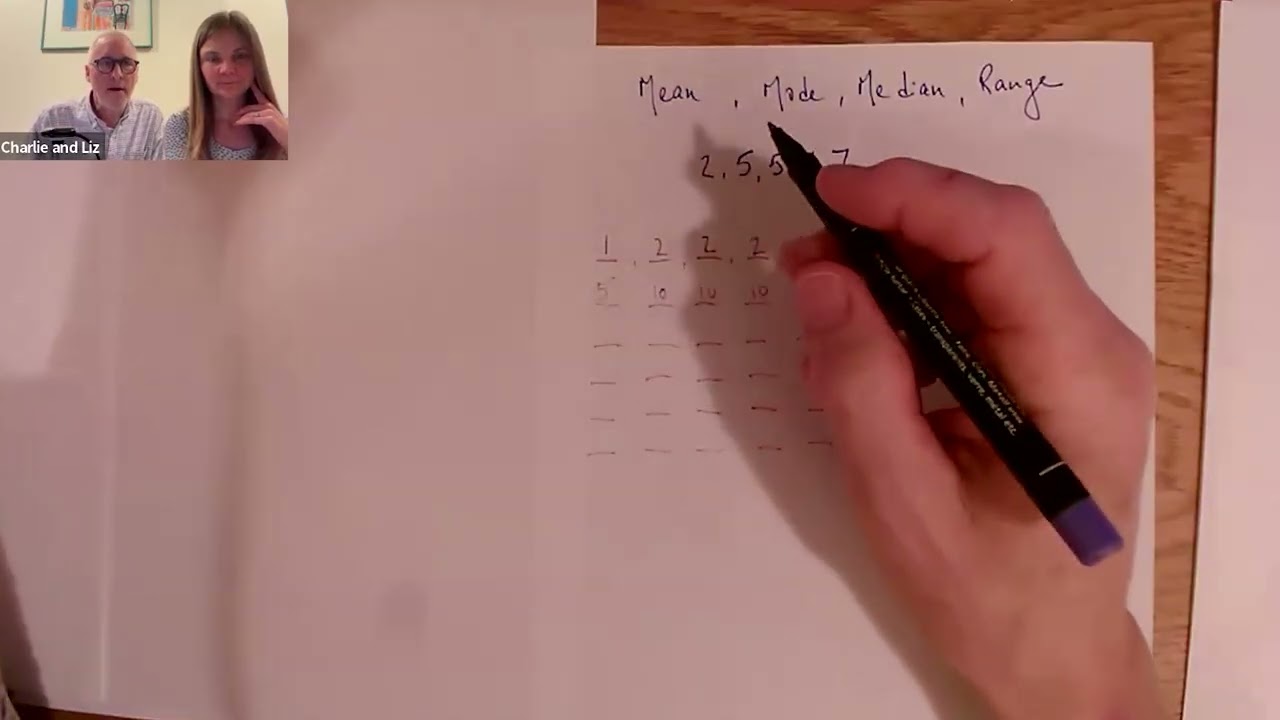 Charlie and Liz
Mean , Mode , Median , Range
2 , 5 , 5 7
1 , 2 , 2 , 2
5 10 10 10
transparents, verre, métal etc.